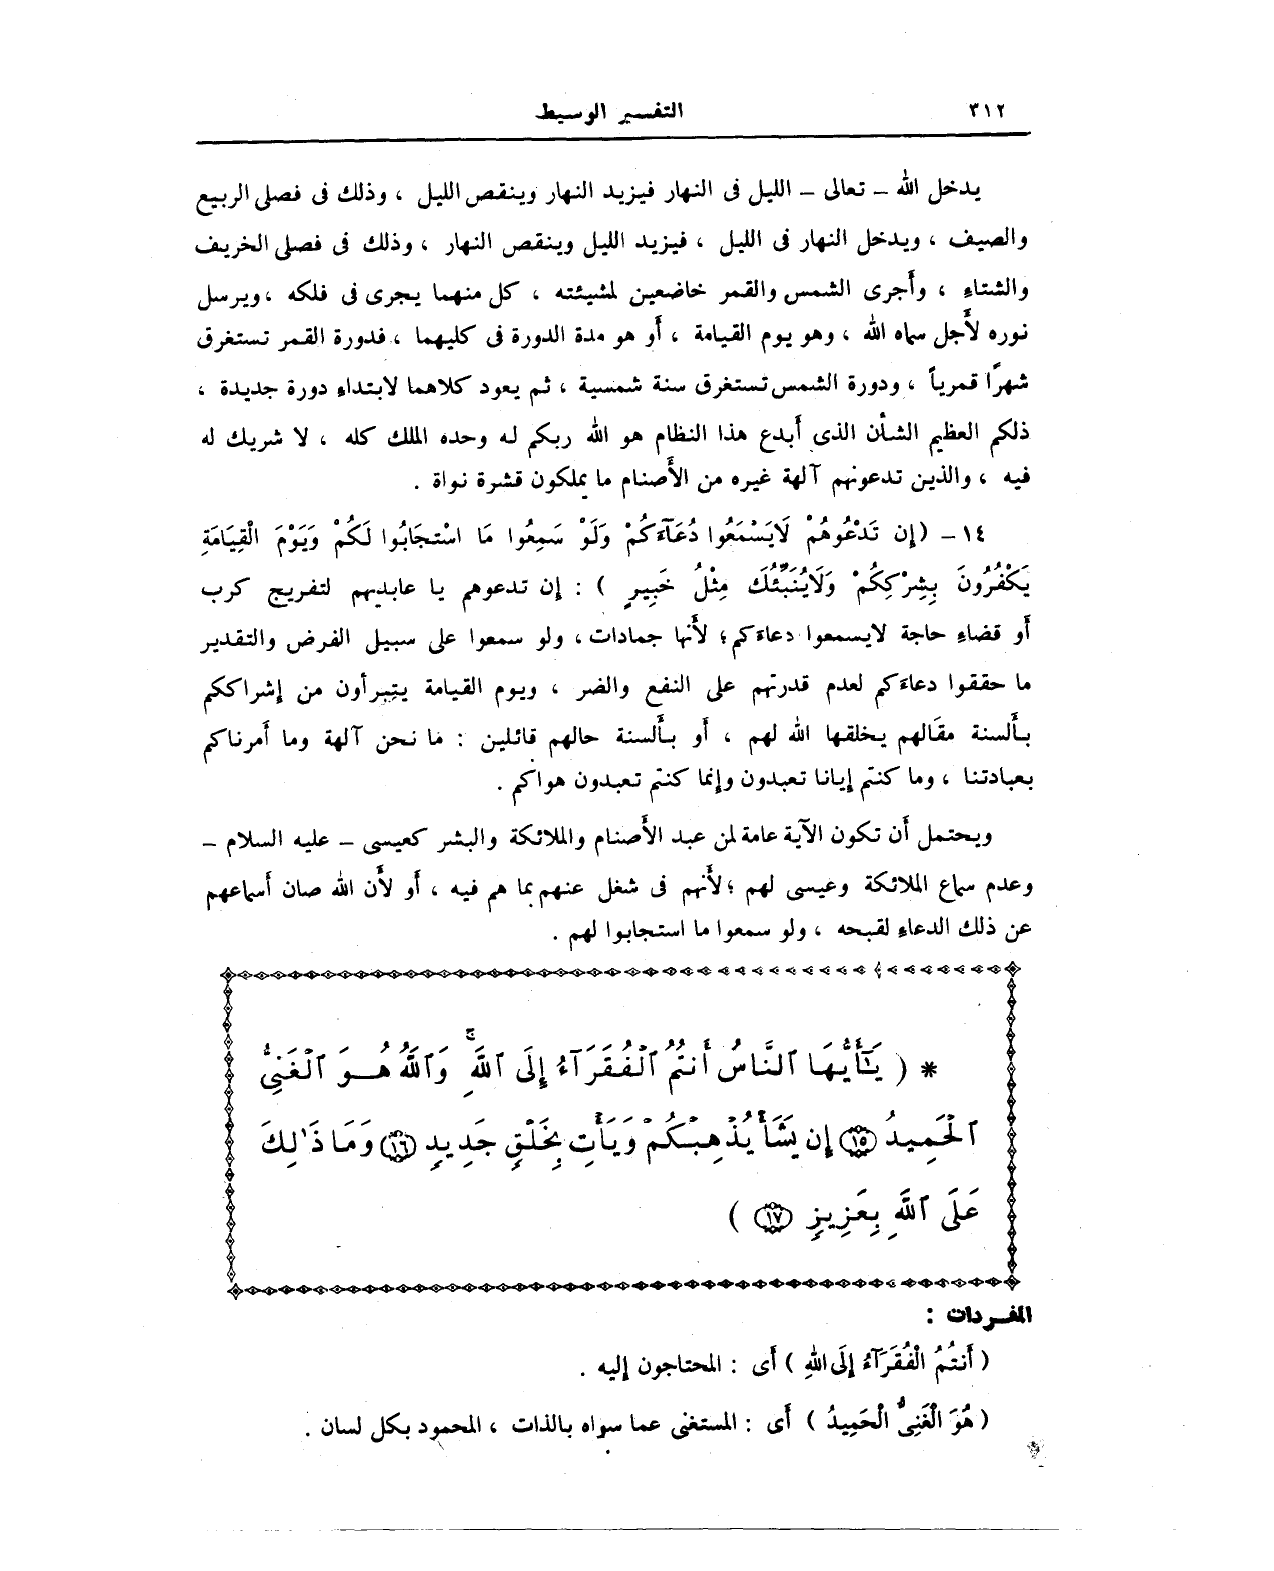 ٣١٢
التفسير الوسيط
يدخل الله – تعالى – الليل فى النهار فيزيد النهار وينقص الليل ، وذلك فى فصلى الربيع
والصيف ، ويدخل النهار فى الليل ، فيزيد الليل وينقص النهار ، وذلك فى فصلى الخريف
والشتاء ، وأجرى الشمس والقمر خاضعين لمشيئته ، كل منهما يجرى فى فلكه ، ويرسل
نوره لأجل سماه الله ، وهو يوم القيامة ، أو هو مدة الدورة فى كليهما ، فدورة القمر تستغرق
شهرًا قمرياً ، ودورة الشمس تستغرق سنة شمسية ، ثم يعود كلاهما لابتداء دورة جديدة ،
ذلكم العظيم الشأن الذى أبدع هذا النظام هو الله ربكم له وحده الملك كله ، لا شريك له
فيه ، والذين تدعونهم آلهة غيره من الأصنام ما يملكون قشرة نواة .
١٤ – (إِن تَدْعُوهُمْ لَايَسْمَعُوا دُعَآءَكُمْ وَلَوْ سَمِعُوا مَا اسْتَجَابُوا لَكُمْ وَيَوْمَ الْقِيَامَةِ
يَكْفُرُونَ بِشِرْكِكُمْ وَلَايُنَبِّئُكَ مِثْلُ خَبِيرٍ ) : إن تدعوهم يا عابديهم لتفريج كرب
أو قضاء حاجة لايسمعوا دعاءكم؛ لأنها جمادات ، ولو سمعوا على سبيل الفرض والتقدير
ما حققوا دعاءكم لعدم قدرتهم على النفع والضر ، ويوم القيامة يتبرأون من إشراككم
بألسنة مقالهم يخلقها الله لهم ، أو بألسنة حالهم قائلين : ما نحن آلهة وما أمرناكم
بعبادتنا ، وما كنتم إيانا تعبدون وإنما كنتم تعبدون هواكم .
ويحتمل أن تكون الآية عامة لمن عبد الأصنام والملائكة والبشر كعيسى – عليه السلام –
وعدم سماع الملائكة وعيسى لهم ؛ لأنهم فى شغل عنهم بما هم فيه ، أو لأن الله صان أسماعهم
عن ذلك الدعاء لقبحه ، ولو سمعوا ما استجابوا لهم .
* ( يَـٰٓأَيُّهَا ٱلنَّاسُ أَنتُمُ ٱلْفُقَرَآءُ إِلَى ٱللَّهِ ۚ وَٱللَّهُ هُوَ ٱلْغَنِىُّ
ٱلْحَمِيدُ ١٥ إِن يَشَأْ يُذْهِبْكُمْ وَيَأْتِ بِخَلْقٍ جَدِيدٍ ١٦ وَمَا ذَٰلِكَ
عَلَى ٱللَّهِ بِعَزِيزٍ ١٧ )
المفردات :
( أَنتُمُ الْفُقَرَآءُ إِلَى اللهِ ) أَى : المحتاجون إليه .
( هُوَ الْغَنِىُّ الْحَمِيدُ ) أَى : المستغنى عما سواه بالذات ، المحمود بكل لسان .